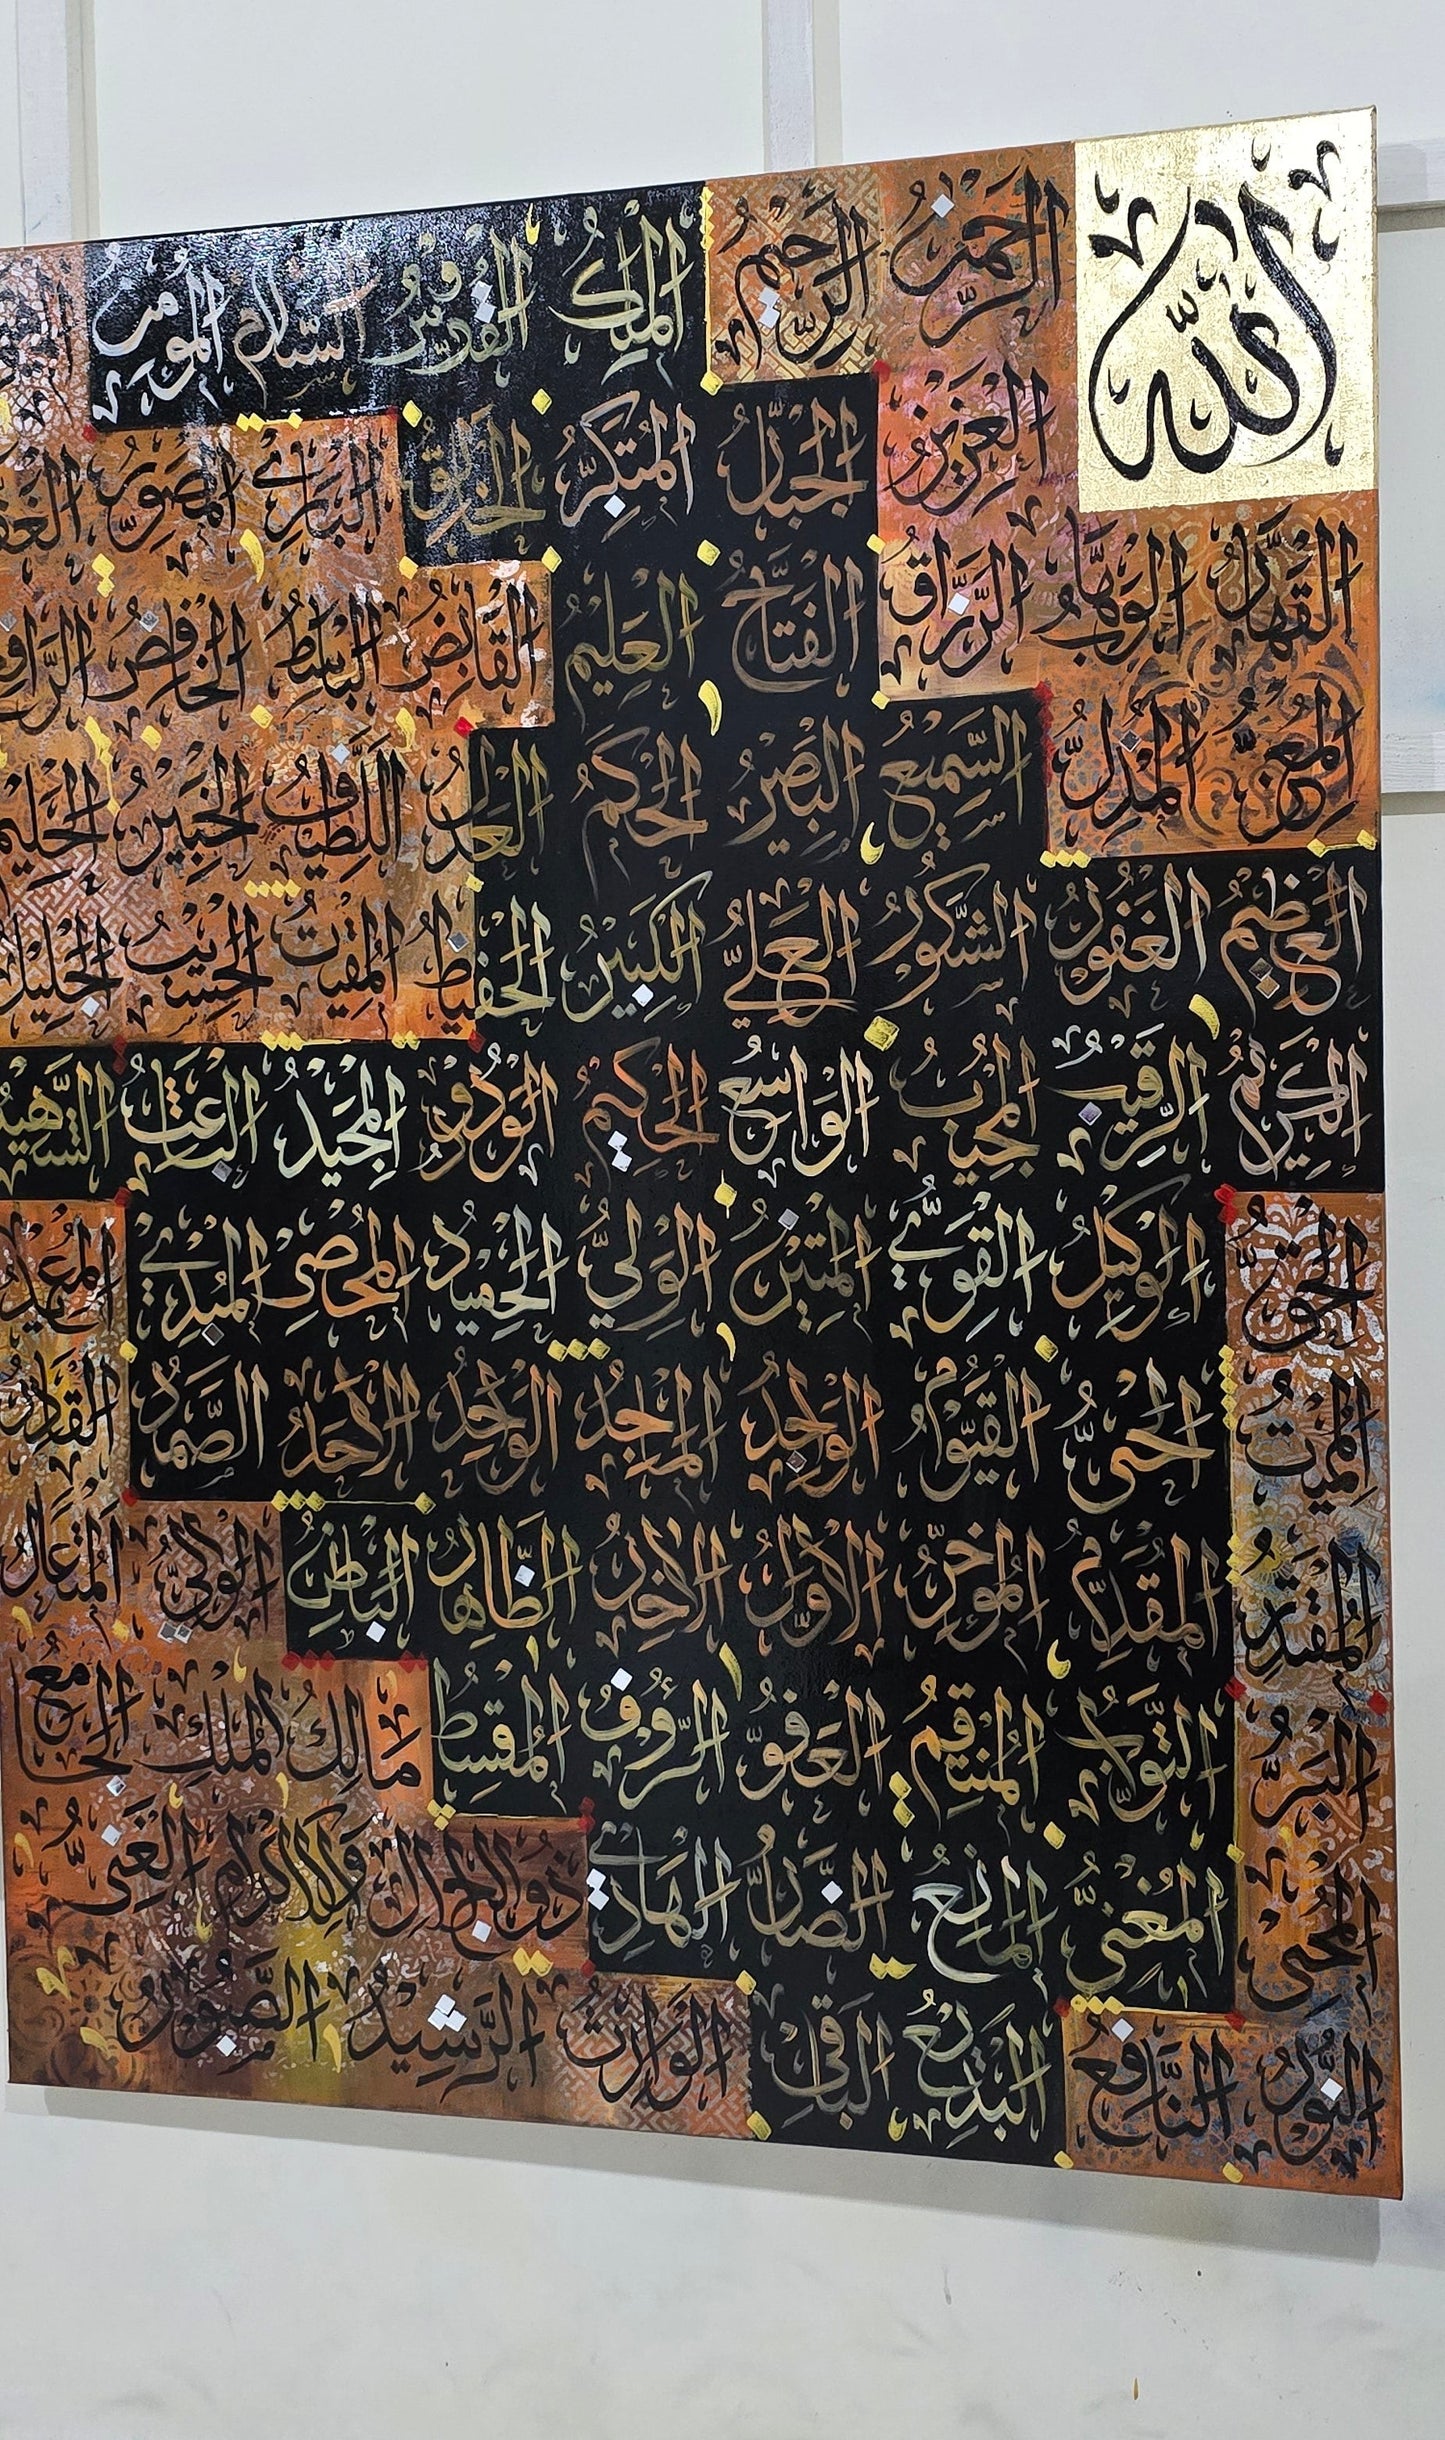 الله
الرَّحْمٰنُ الرَّحِيمُ الْمَلِكُ الْقُدُّوسُ السَّلَامُ الْمُؤْمِنُ
الْعَزِيزُ الْجَبَّارُ الْمُتَكَبِّرُ الْخَالِقُ الْبَارِئُ الْمُصَوِّرُ
الْقَهَّارُ الْوَهَّابُ الرَّزَّاقُ الْفَتَّاحُ الْعَلِيمُ الْقَابِضُ الْبَاسِطُ الْخَافِضُ
الْمُعِزُّ الْمُذِلُّ السَّمِيعُ الْبَصِيرُ الْحَكَمُ الْعَدْلُ اللَّطِيفُ الْخَبِيرُ الْحَلِيمُ
الْعَظِيمُ الْغَفُورُ الشَّكُورُ الْعَلِيُّ الْكَبِيرُ الْحَفِيظُ الْمُقِيتُ الْحَسِيبُ الْجَلِيلُ
الْكَرِيمُ الرَّقِيبُ الْمُجِيبُ الْوَاسِعُ الْحَكِيمُ الْوَدُودُ الْمَجِيدُ الْبَاعِثُ الشَّهِيدُ
الْحَقُّ الْوَكِيلُ الْقَوِيُّ الْمَتِينُ الْوَلِيُّ الْحَمِيدُ الْمُحْصِي الْمُبْدِئُ الْمُعِيدُ
الْمُمِيتُ الْحَيُّ الْقَيُّومُ الْوَاجِدُ الْمَاجِدُ الْوَاحِدُ الْأَحَدُ الصَّمَدُ الْقَادِرُ
الْمُقْتَدِرُ الْمُقَدِّمُ الْمُؤَخِّرُ الْأَوَّلُ الْآخِرُ الظَّاهِرُ الْبَاطِنُ الْوَالِي الْمُتَعَالُ
الْبَرُّ التَّوَّابُ الْمُنْتَقِمُ الْعَفُوُّ الرَّءُوفُ الْمُقْسِطُ مَالِكُ الْمُلْكِ الْجَامِعُ
الْمُحْيِي الْمُغْنِي الْمَانِعُ الضَّارُّ الْهَادِي ذُو الْجَلَالِ وَالْإِكْرَامِ الْغَنِيُّ
النُّورُ النَّافِعُ الْبَدِيعُ الْبَاقِي الْوَارِثُ الرَّشِيدُ الصَّبُورُ